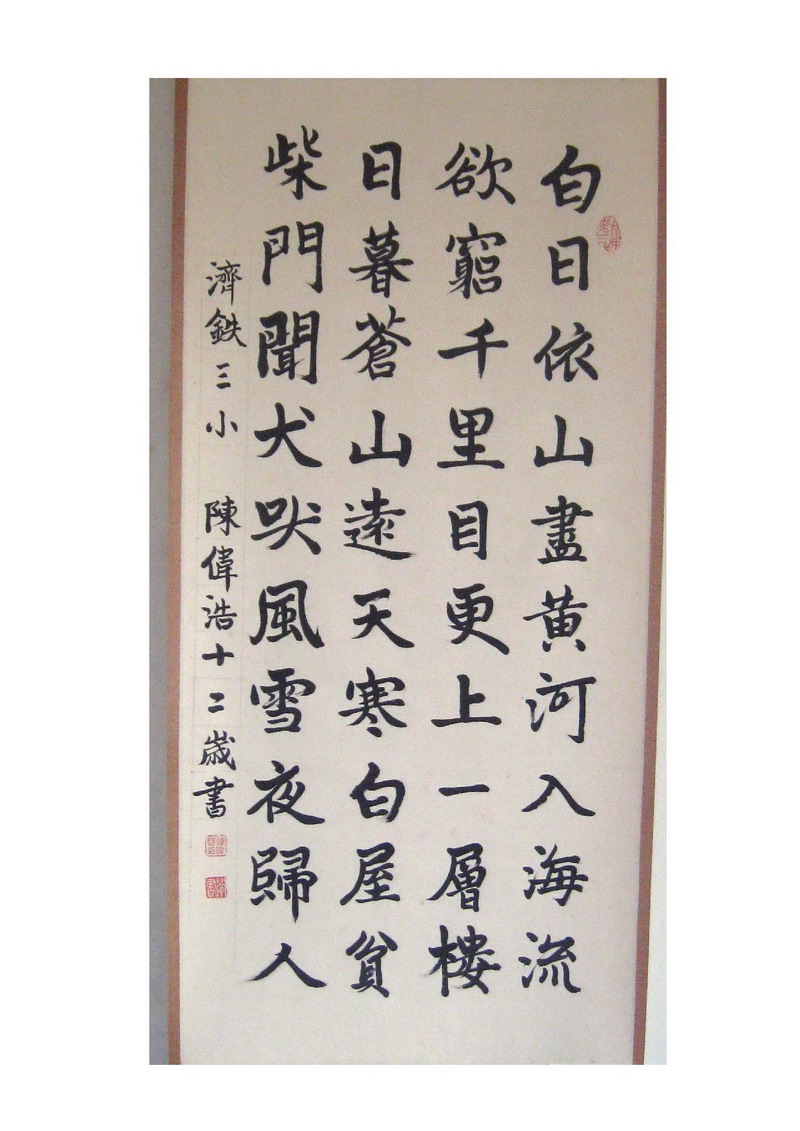 白日依山盡黃河入海流
欲窮千里目更上一層樓
日暮蒼山遠天寒白屋貧
柴門聞犬吠風雪夜歸人
濟鉄三小 陳偉浩十二歲書